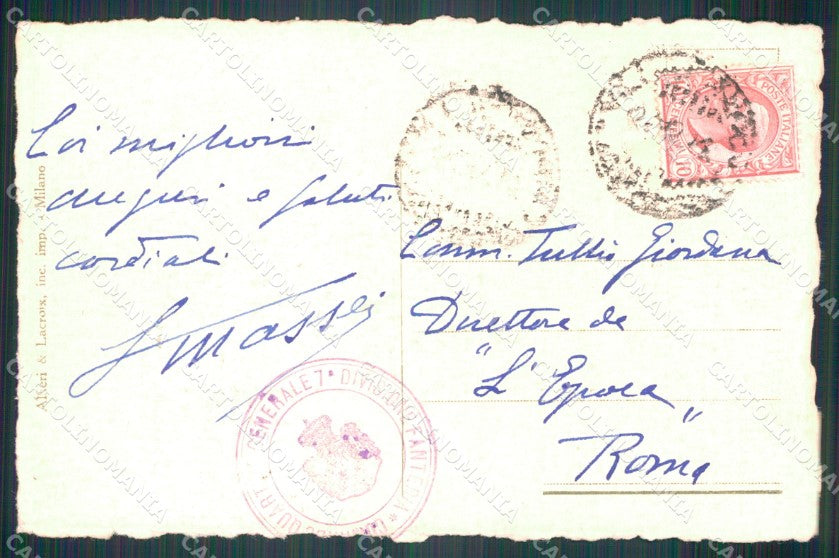 Coi migliori
auguri e saluti
cordiali
Comm. Tullio Giordana
Direttore de
"L'Epoca"
Roma
Alfieri & Lacroix, inc. imp. Milano
GENERALE 7ª DIVISIONE FANT
QUART
POSTE ITALIANE
10
CARTOLINOMANIA